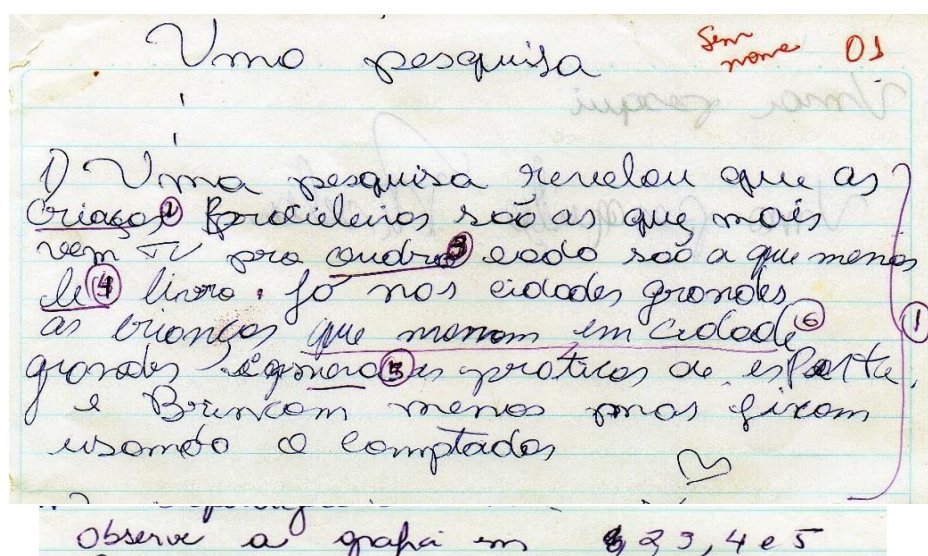 Uma pesquisa
Sem nome 01
1) Uma pesquisa revelou que as
criaços 2 Brocileiros são as que mais
vem TV pro oudro 3 lado são a que menos
le 4 livro. Só nos cidades grandes
as crianças que moram em cidade 6 1
grandes 5 as práticas de esPorte.
e Brincam menos mas ficam
usando o comptador
observe a grafia em 2, 3, 4 e 5